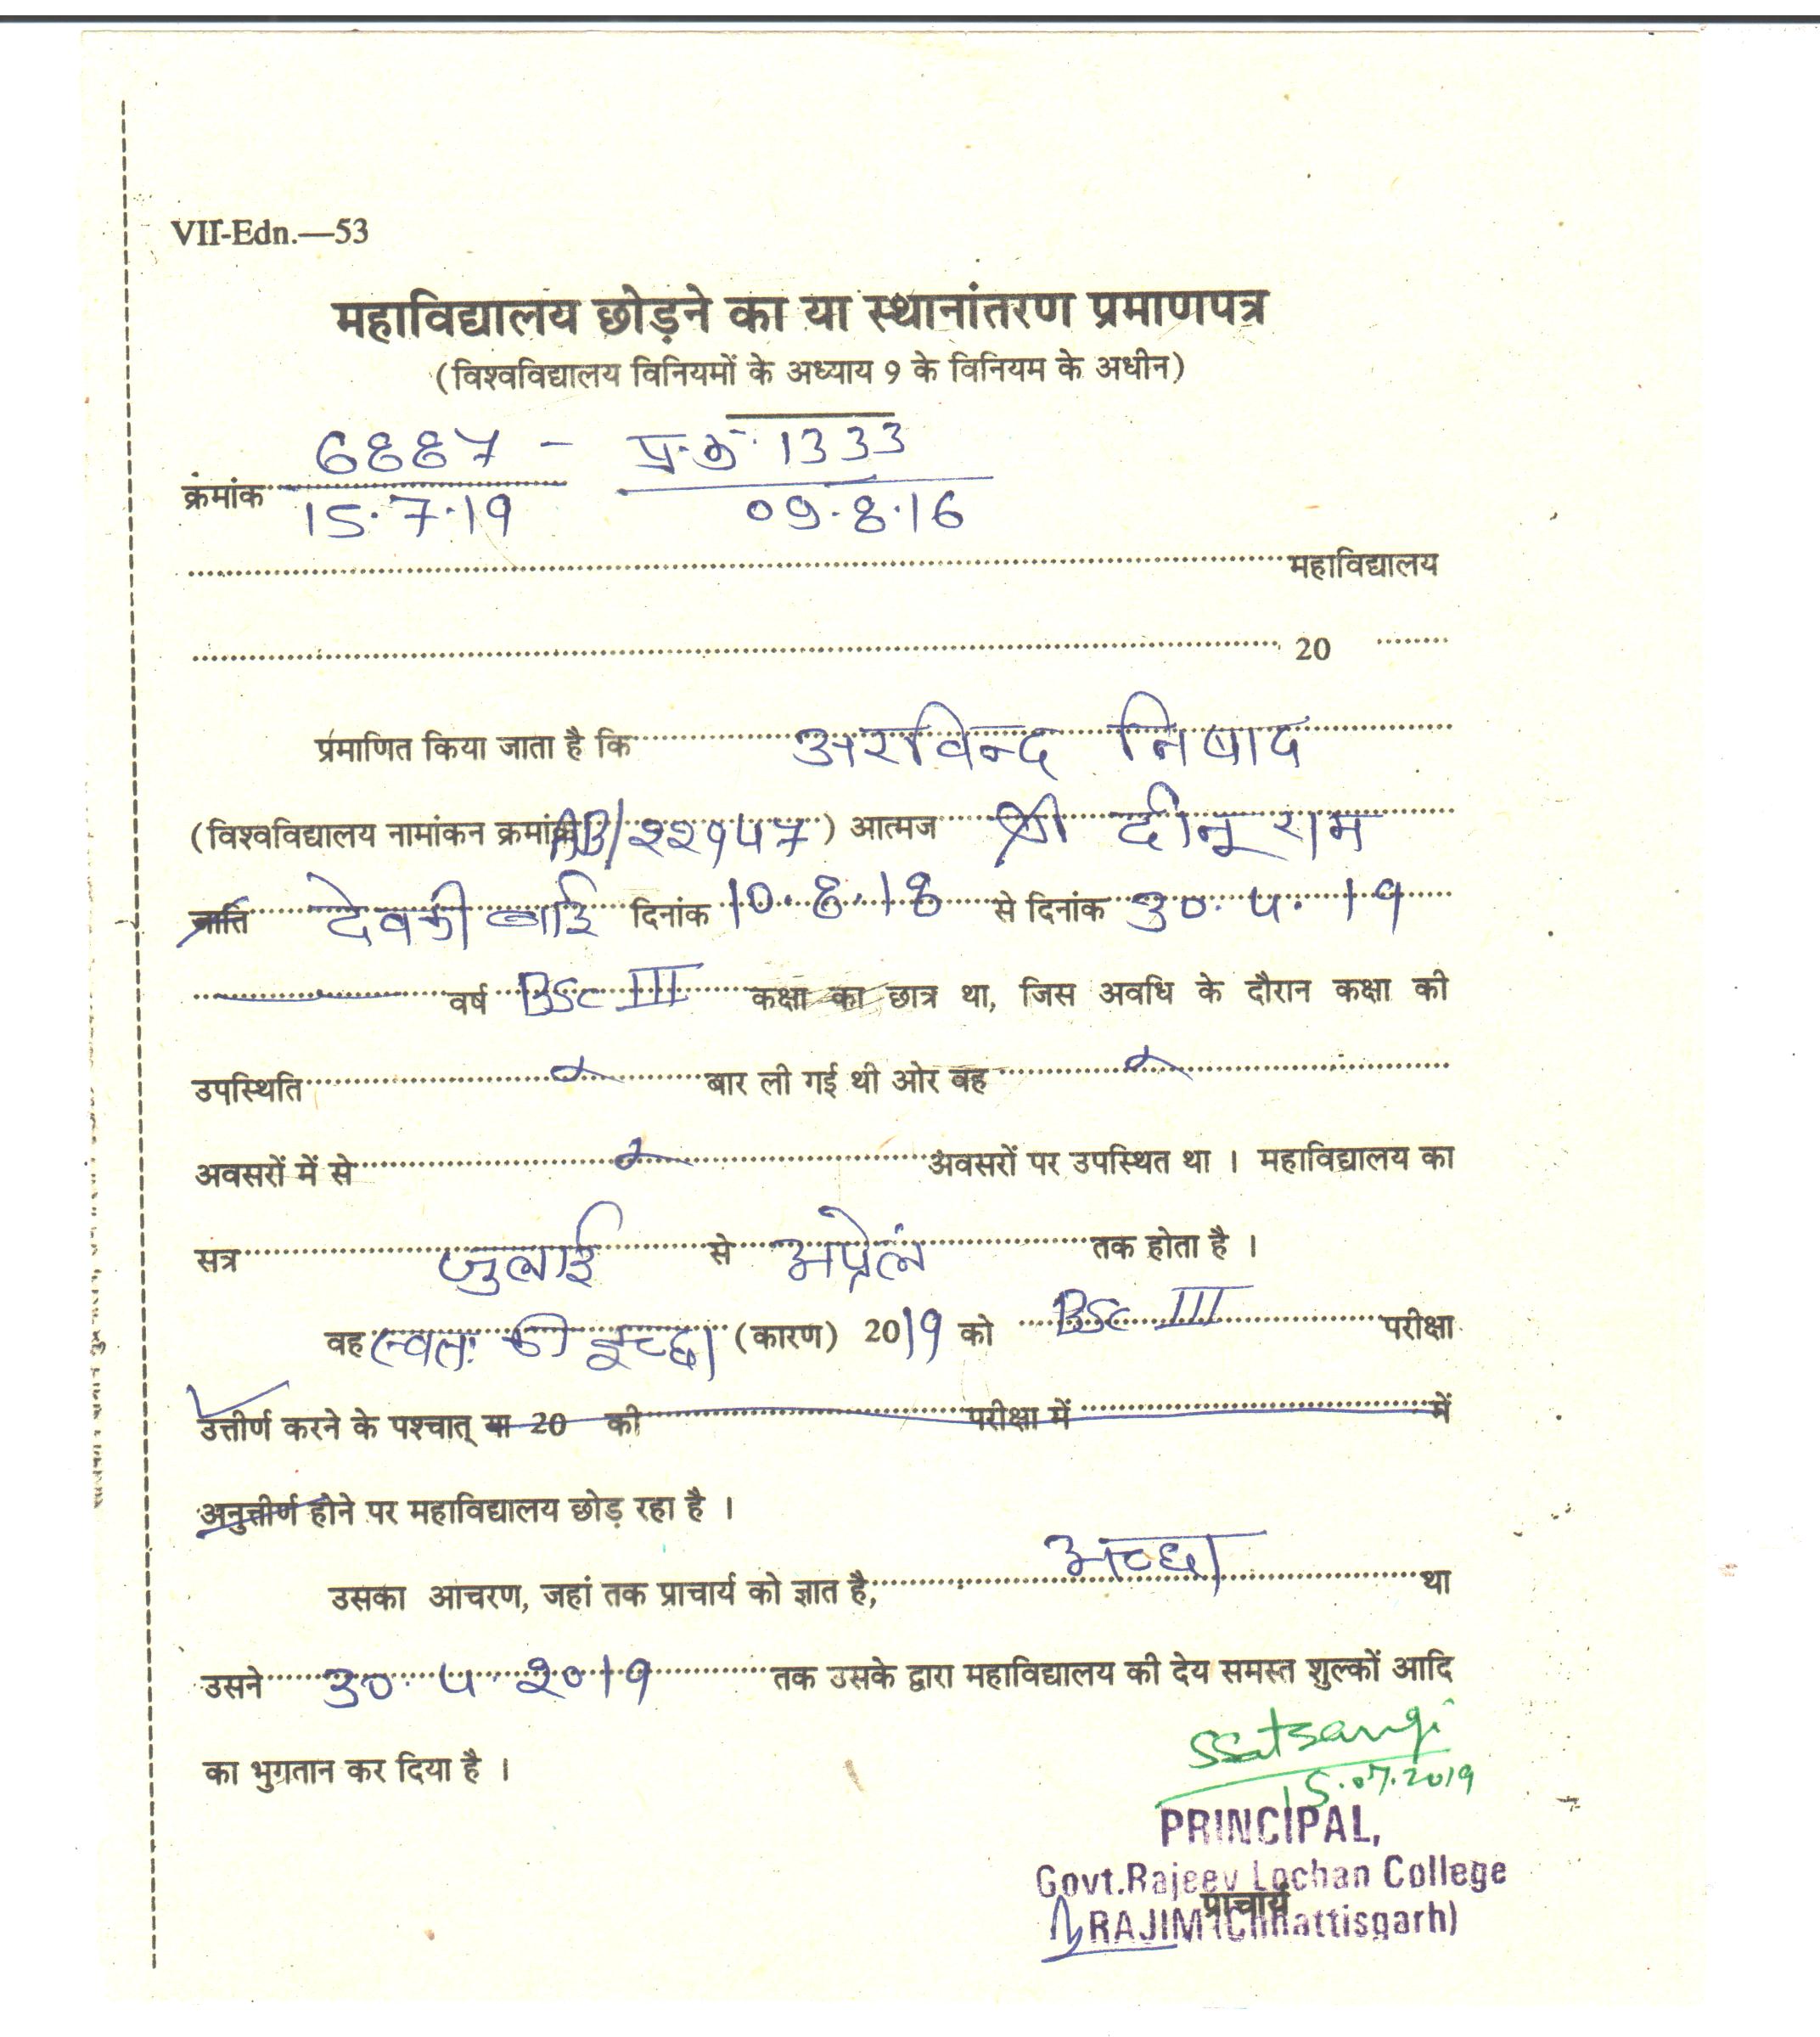 VII-Edn.—53
महाविद्यालय छोड़ने का या स्थानांतरण प्रमाणपत्र
(विश्वविद्यालय विनियमों के अध्याय 9 के विनियम के अधीन)
6887 - प्र.क्र. 1333
क्रंमांक
15.7.19 09.8.16
महाविद्यालय
20
प्रमाणित किया जाता है कि अरविन्द निषाद
(विश्वविद्यालय नामांकन क्रमांक /२२१५७) आत्मज श्री दीनू राम
जाति देवकी बाई दिनांक 10.8.18 से दिनांक ३०.५.19
वर्ष BSc III कक्षा का छात्र था, जिस अवधि के दौरान कक्षा की
उपस्थिति बार ली गई थी ओर वह
अवसरों में से अवसरों पर उपस्थित था । महाविद्यालय का
सत्र जुलाई से अप्रेल तक होता है ।
वह स्वतः की इच्छा (कारण) 2019 को BSc III परीक्षा
उत्तीर्ण करने के पश्चात् या 20 की परीक्षा में में
अनुत्तीर्ण होने पर महाविद्यालय छोड़ रहा है ।
उसका आचरण, जहां तक प्राचार्य को ज्ञात है, अच्छा था
उसने ३०.५.२०19 तक उसके द्वारा महाविद्यालय की देय समस्त शुल्कों आदि
का भुगतान कर दिया है ।
SSatsangi
15.07.2019
PRINCIPAL,
Govt.Rajeev Lochan College
प्राचार्य
RAJIM (Chhattisgarh)